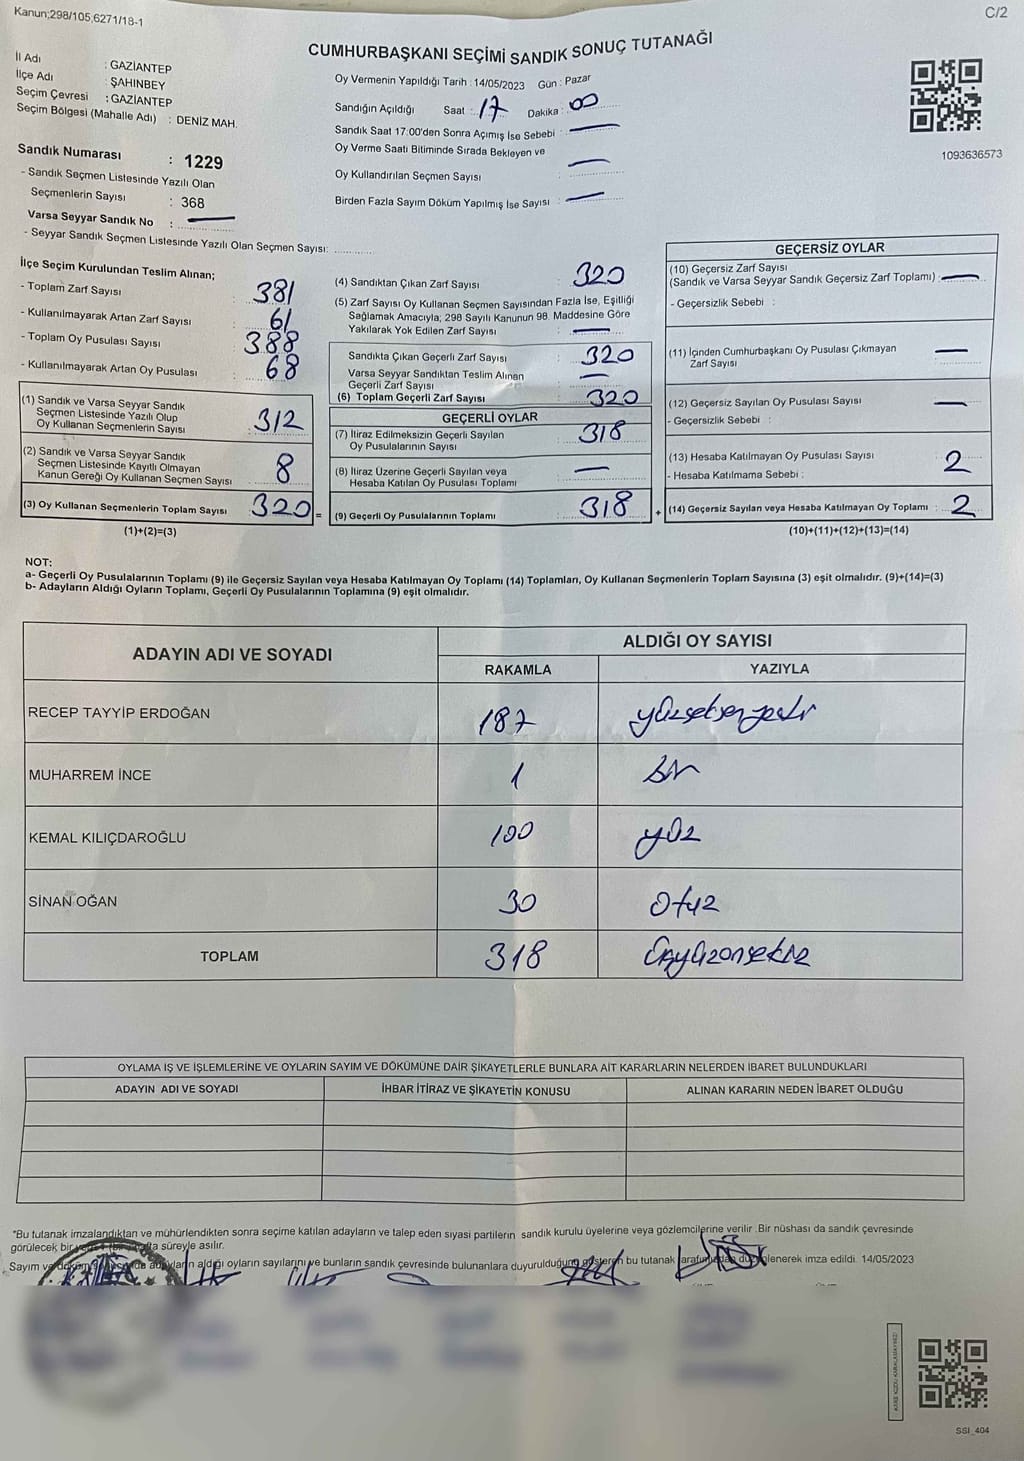 Kanun;298/105,6271/18-1
C/2
CUMHURBAŞKANI SEÇİMİ SANDIK SONUÇ TUTANAĞI
İl Adı : GAZİANTEP
İlçe Adı : ŞAHİNBEY
Seçim Çevresi : GAZİANTEP
Seçim Bölgesi (Mahalle Adı) : DENİZ MAH.
Sandık Numarası : 1229
- Sandık Seçmen Listesinde Yazılı Olan
Seçmenlerin Sayısı : 368
Varsa Seyyar Sandık No : —
- Seyyar Sandık Seçmen Listesinde Yazılı Olan Seçmen Sayısı: ............
Oy Vermenin Yapıldığı Tarih : 14/05/2023 Gün : Pazar
Sandığın Açıldığı Saat : 17 Dakika : 00
Sandık Saat 17:00'den Sonra Açımış İse Sebebi : —
Oy Verme Saati Bitiminde Sırada Bekleyen ve
Oy Kullandırılan Seçmen Sayısı : —
Birden Fazla Sayım Döküm Yapılmış İse Sayısı : —
1093636573
İlçe Seçim Kurulundan Teslim Alınan;
- Toplam Zarf Sayısı : 381
- Kullanılmayarak Artan Zarf Sayısı : 61
- Toplam Oy Pusulası Sayısı : 388
- Kullanılmayarak Artan Oy Pusulası : 68
(1) Sandık ve Varsa Seyyar Sandık
Seçmen Listesinde Yazılı Olup
Oy Kullanan Seçmenlerin Sayısı : 312
(2) Sandık ve Varsa Seyyar Sandık
Seçmen Listesinde Kayıtlı Olmayan
Kanun Gereği Oy Kullanan Seçmen Sayısı : 8
(3) Oy Kullanan Seçmenlerin Toplam Sayısı : 320 =
(1)+(2)=(3)
(4) Sandıktan Çıkan Zarf Sayısı : 320
(5) Zarf Sayısı Oy Kullanan Seçmen Sayısından Fazla İse, Eşitliği
Sağlamak Amacıyla; 298 Sayılı Kanunun 98. Maddesine Göre
Yakılarak Yok Edilen Zarf Sayısı : —
Sandıkta Çıkan Geçerli Zarf Sayısı : 320
Varsa Seyyar Sandıktan Teslim Alınan
Geçerli Zarf Sayısı : —
(6) Toplam Geçerli Zarf Sayısı : 320
GEÇERLİ OYLAR
(7) İtiraz Edilmeksizin Geçerli Sayılan
Oy Pusulalarının Sayısı : 318
(8) İtiraz Üzerine Geçerli Sayılan veya
Hesaba Katılan Oy Pusulası Toplamı : —
(9) Geçerli Oy Pusulalarının Toplamı : 318 +
GEÇERSİZ OYLAR
(10) Geçersiz Zarf Sayısı
(Sandık ve Varsa Seyyar Sandık Geçersiz Zarf Toplamı) : —
- Geçersizlik Sebebi :
(11) İçinden Cumhurbaşkanı Oy Pusulası Çıkmayan
Zarf Sayısı : —
(12) Geçersiz Sayılan Oy Pusulası Sayısı : —
- Geçersizlik Sebebi :
(13) Hesaba Katılmayan Oy Pusulası Sayısı : 2
- Hesaba Katılmama Sebebi :
(14) Geçersiz Sayılan veya Hesaba Katılmayan Oy Toplamı : 2
(10)+(11)+(12)+(13)=(14)
NOT:
a- Geçerli Oy Pusulalarının Toplamı (9) ile Geçersiz Sayılan veya Hesaba Katılmayan Oy Toplamı (14) Toplamları, Oy Kullanan Seçmenlerin Toplam Sayısına (3) eşit olmalıdır. (9)+(14)=(3)
b- Adayların Aldığı Oyların Toplamı, Geçerli Oy Pusulalarının Toplamına (9) eşit olmalıdır.
ADAYIN ADI VE SOYADI
ALDIĞI OY SAYISI
RAKAMLA YAZIYLA
RECEP TAYYİP ERDOĞAN 187 yüzseksenyedi
MUHARREM İNCE 1 bir
KEMAL KILIÇDAROĞLU 100 yüz
SİNAN OĞAN 30 Otuz
TOPLAM 318 Üçyüzonsekiz
OYLAMA İŞ VE İŞLEMLERİNE VE OYLARIN SAYIM VE DÖKÜMÜNE DAİR ŞİKAYETLERLE BUNLARA AİT KARARLARIN NELERDEN İBARET BULUNDUKLARI
ADAYIN ADI VE SOYADI İHBAR İTİRAZ VE ŞİKAYETİN KONUSU ALINAN KARARIN NEDEN İBARET OLDUĞU
"Bu tutanak imzalandıktan ve mühürlendikten sonra seçime katılan adayların ve talep eden siyasi partilerin sandık kurulu üyelerine veya gözlemcilerine verilir. Bir nüshası da sandık çevresinde
görülecek bir süreyle asılır.
Sayım ve aldığı oyların sayılarını ve bunların sandık çevresinde bulunanlara duyurulduğunu gösteren bu tutanak imza edildi. 14/05/2023
SSI_404